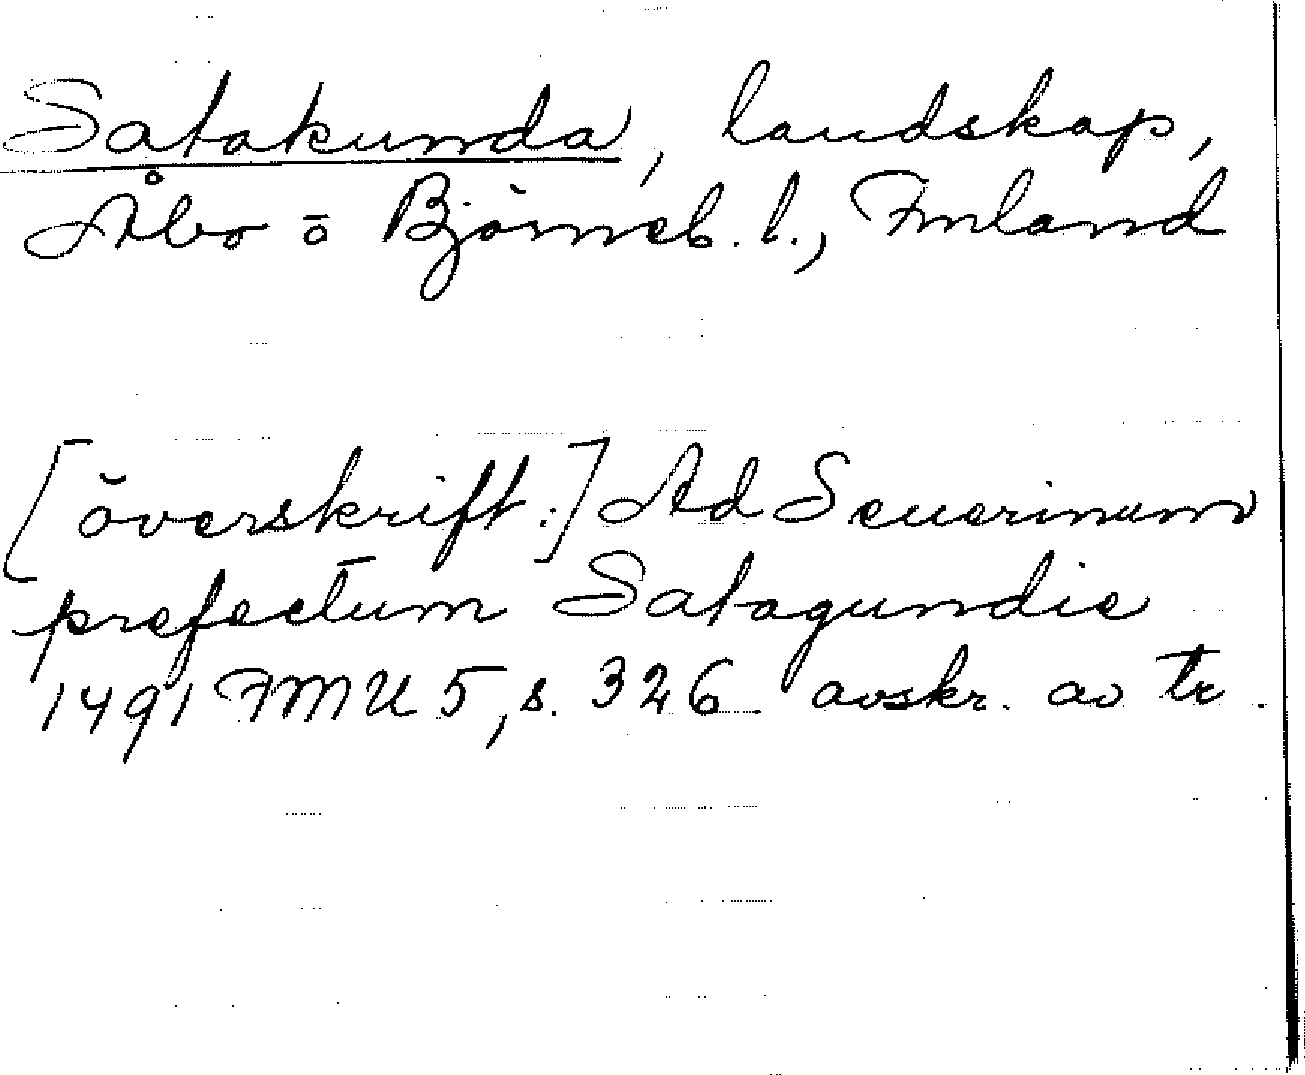 Satakunda, landskap,
Åbo o Björneb. l., Finland
[överskrift:] Ad Seuerinum
prefectum Satagundie
1491 FMU 5, s. 326 avskr. av tr.